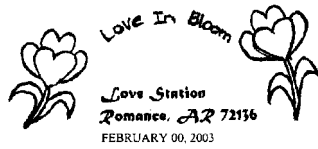 Love In Bloom
Love Station
Romance, AR 72136
FEBRUARY 00, 2003